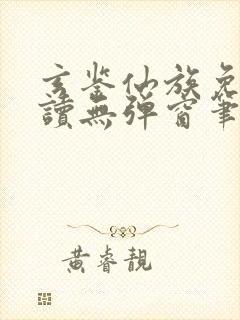 玄鉴仙族免
讀無彈窗筆
黃睿靚